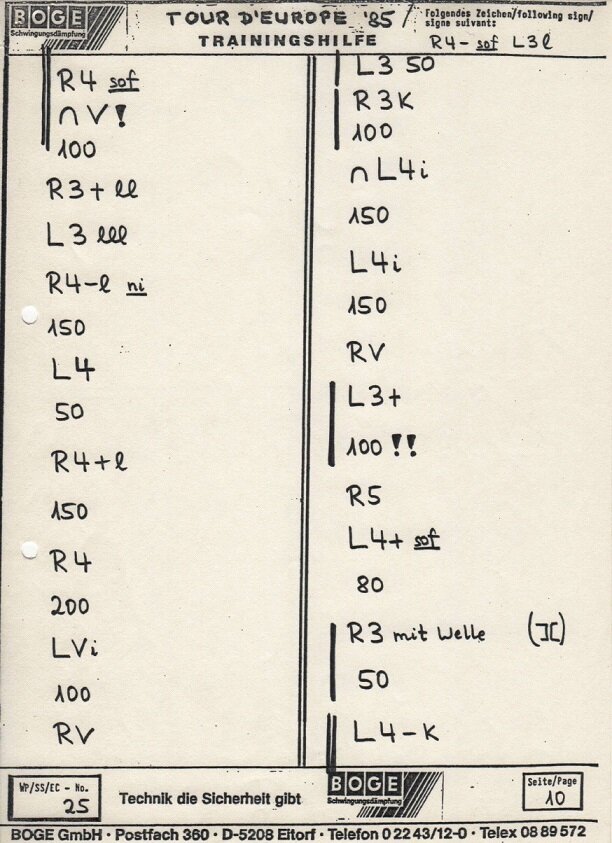 BOGE
Schwingungsdämpfung
TOUR D'EUROPE '85
TRAININGSHILFE
Folgendes Zeichen/following sign/
signe suivant:
R4- sof L3l
R4 sof
∩ V!
100
R3+ ll
L3 lll
R4-l ni
150
L4
50
R4+l
150
R4
200
LVi
100
RV
L3 50
R3K
100
∩ L4i
150
L4i
150
RV
L3+
100 !!
R5
L4+ sof
80
R3 mit Welle (][)
50
L4-K
WP/SS/EC - No.
25
Technik die Sicherheit gibt
BOGE
Schwingungsdämpfung
Seite/Page
10
BOGE GmbH · Postfach 360 · D-5208 Eitorf · Telefon 0 22 43/12-0 · Telex 08 89 572